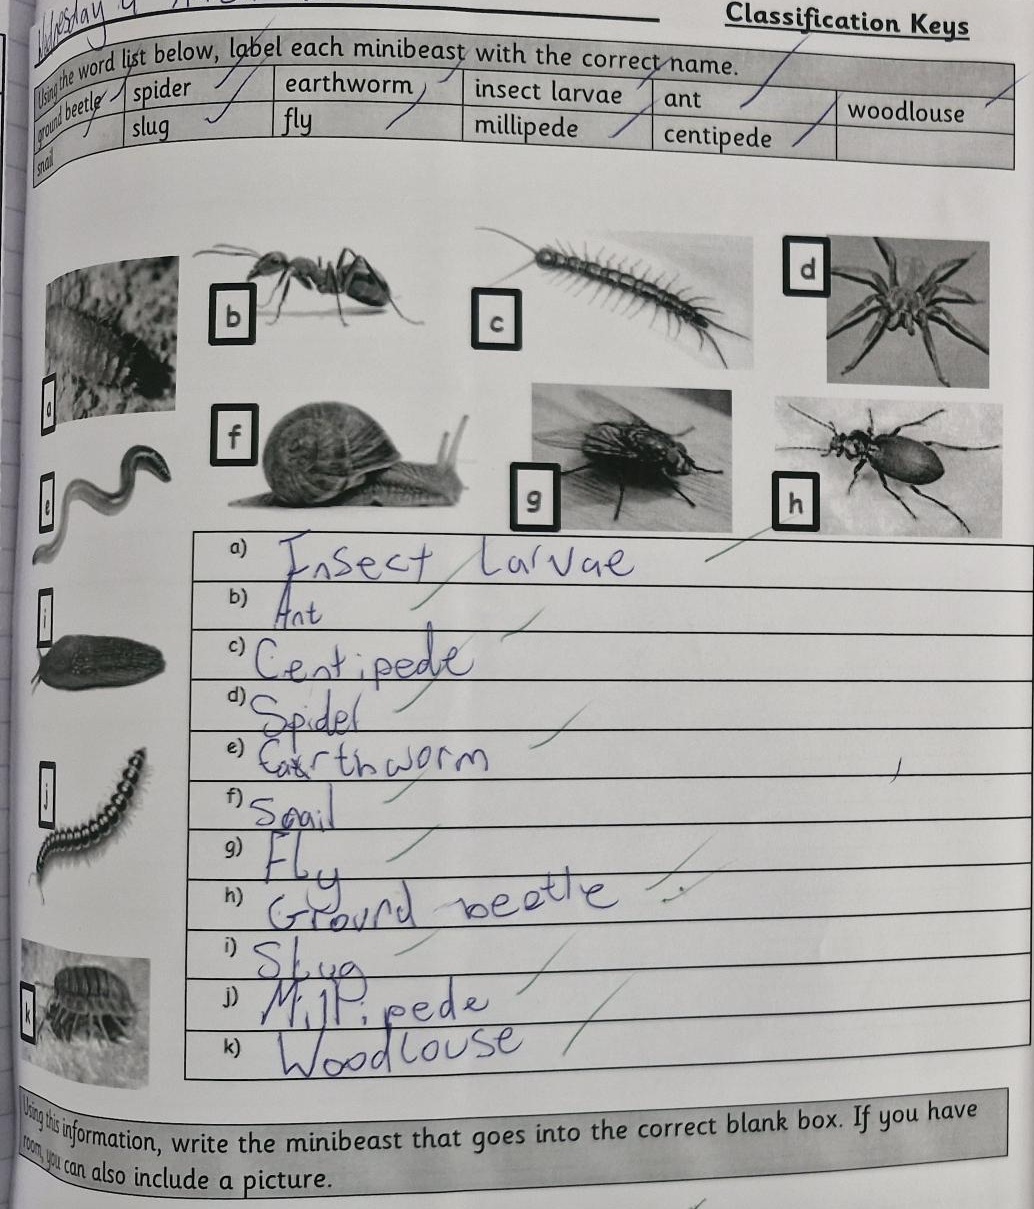 Wednesday
Classification Keys
Using the word list below, label each minibeast with the correct name.
ground beetle spider earthworm insect larvae ant woodlouse
snail slug fly millipede centipede
a
b
c
d
e
f
g
h
i
j
k
a) Insect Larvae
b) Ant
c) Centipede
d) Spider
e) Earthworm
f) Snail
g) Fly
h) Ground beetle
i) Slug
j) Millipede
k) Woodlouse
Using this information, write the minibeast that goes into the correct blank box. If you have
room, you can also include a picture.